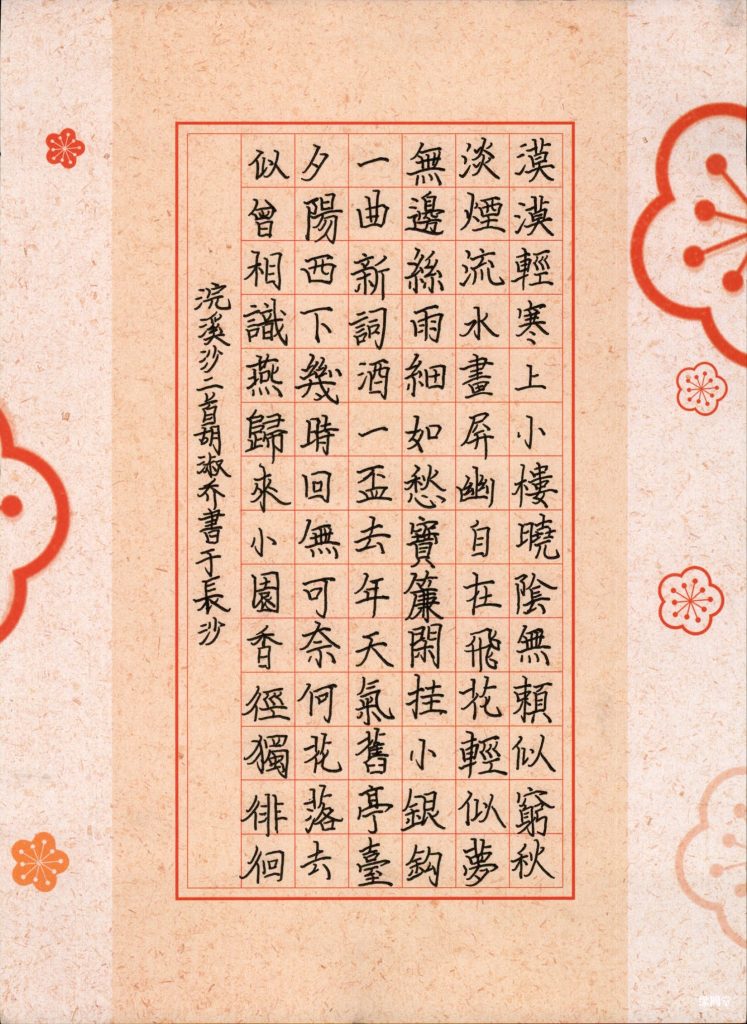 漠漠輕寒上小樓曉陰無賴似窮秋
淡煙流水畫屏幽自在飛花輕似夢
無邊絲雨細如愁寶簾閑挂小銀鈎
一曲新詞酒一盃去年天氣舊亭臺
夕陽西下幾時回無可奈何花落去
似曾相識燕歸來小園香徑獨徘徊
浣溪沙二首胡淑乔書于長沙